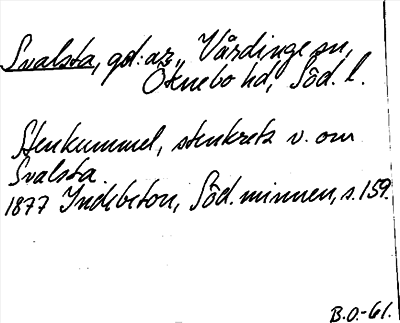 Svalsta, gd: ar, Vårdinge sn,
Öknebo hd, Söd. l.
Stenkummel, stenkrets v. om
Svalsta.
1877 Indebetou, Söd. minnen, s. 159.
B.O.-61.